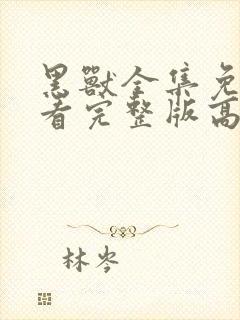 黑獸全集免
看完整版高
林岑